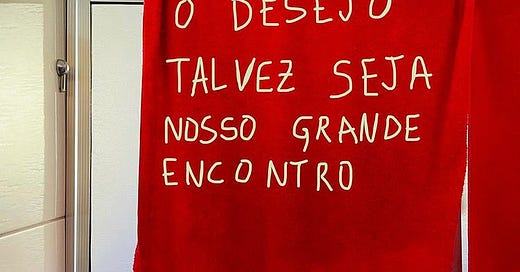 O DESEJO
TALVEZ SEJA
NOSSO GRANDE
ENCONTRO